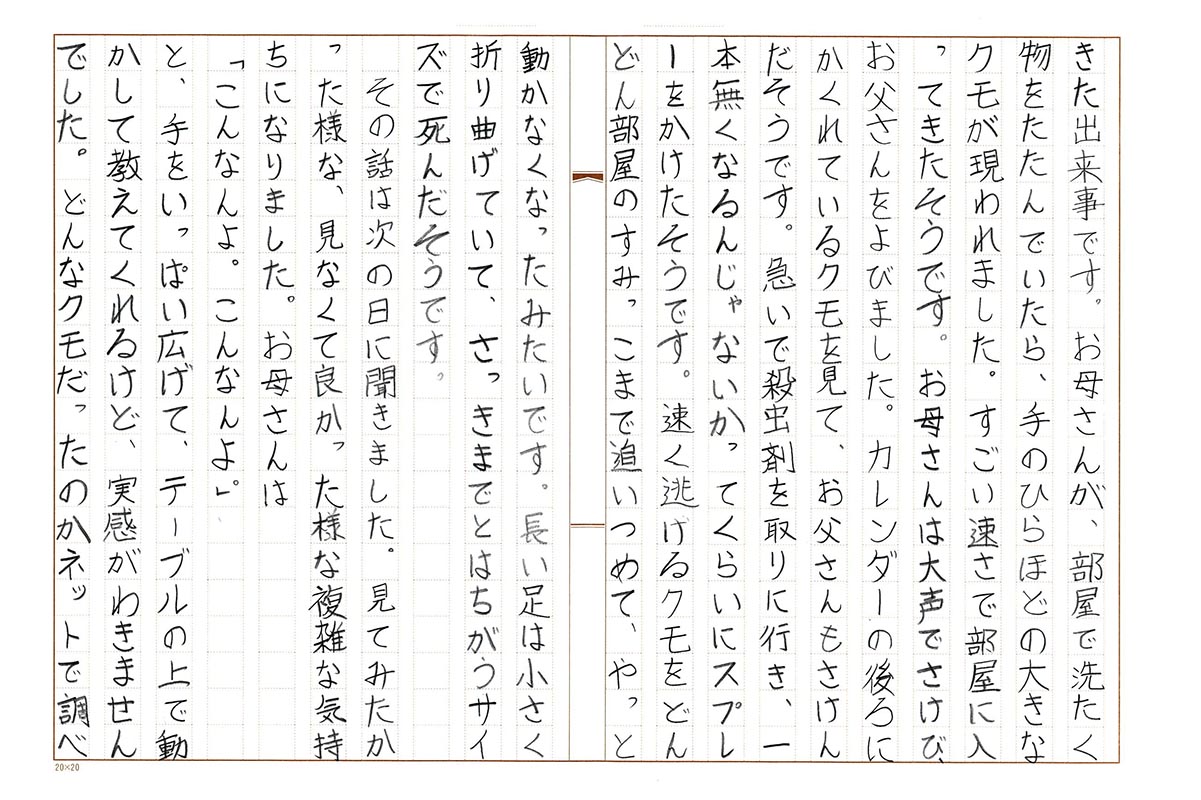 きた出来事です。お母さんが、部屋で洗たく
物をたたんでいたら、手のひらほどの大きな
クモが現われました。すごい速さで部屋に入
ってきたそうです。お母さんは大声でさけび、
お父さんをよびました。カレンダーの後ろに
かくれているクモを見て、お父さんもさけん
だそうです。急いで殺虫剤を取りに行き、一
本無くなるんじゃないかってくらいにスプレ
ーをかけたそうです。速く逃げるクモをどん
どん部屋のすみっこまで追いつめて、やっと
動かなくなったみたいです。長い足は小さく
折り曲げていて、さっきまでとはちがうサイ
ズで死んだそうです。
その話は次の日に聞きました。見てみたか
った様な、見なくて良かった様な複雑な気持
ちになりました。お母さんは
「こんなんよ。こんなんよ」。
と、手をいっぱい広げて、テーブルの上で動
かして教えてくれるけど、実感がわきません
でした。どんなクモだったのかネットで調べ
20×20